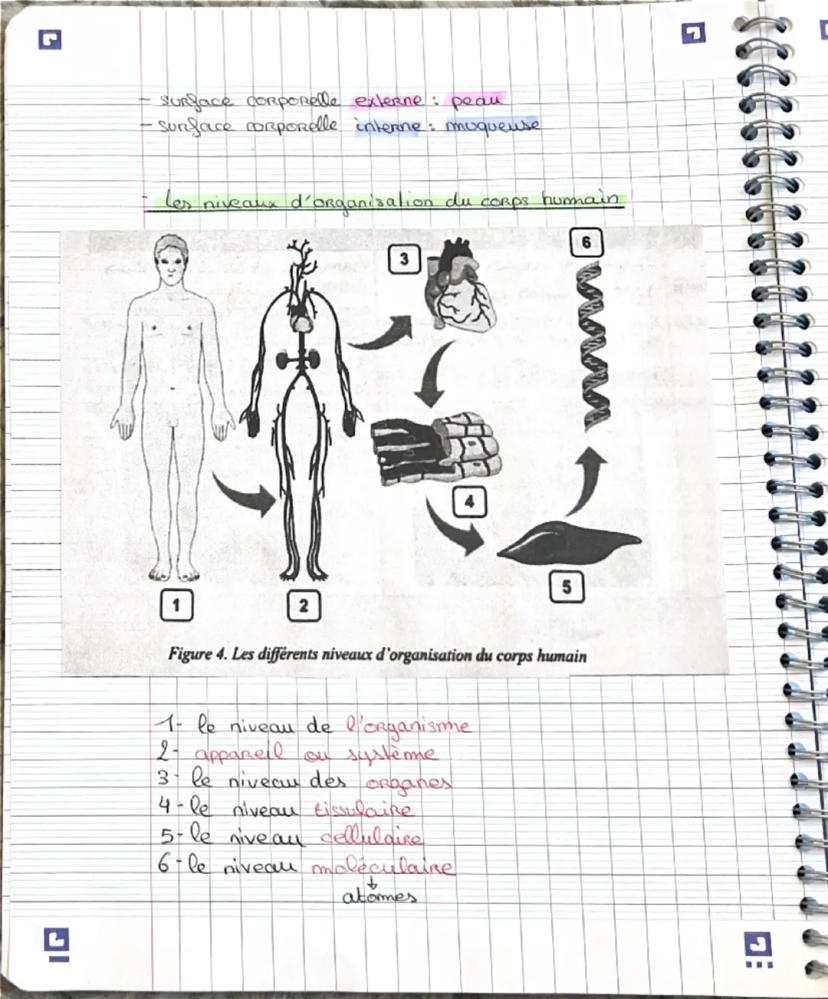 - surface corporelle externe : peau
- surface corporelle interne : muqueuse
- les niveaux d'organisation du corps humain
3
6
4
5
1
2
Figure 4. Les différents niveaux d'organisation du corps humain
1- le niveau de l'organisme
2- appareil ou système
3- le niveau des organes
4- le niveau tissulaire
5- le niveau cellulaire
6- le niveau moléculaire
↓
atomes